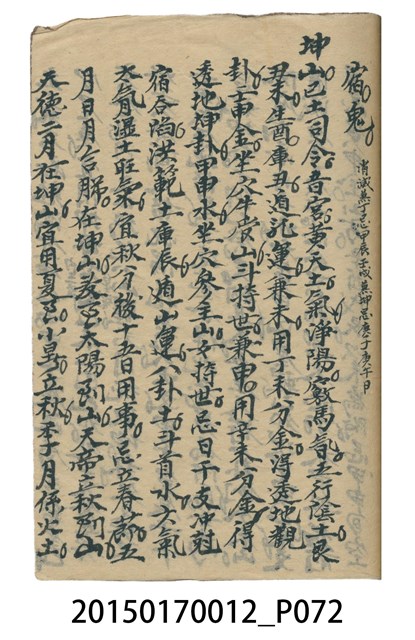 宿鬼
消滅兼丁忌甲辰壬戌兼坤忌庚子庚午日
坤山己土司令音宮黃天土氣淨陽竅馬音五行陰土艮
丑未生酉庫丑遁死運兼未用丁未分金得透地觀
卦二申金坐穴牛度山斗持世兼申用辛未分金得
透地坤卦甲申水坐穴參主山女持世忌日干支冲尅
宿吞陷洪範土庫辰遁山運八卦土斗首水大氣
天月濕土旺氣宜秋分後十五日用事忌立春都五
月日月合照在坤山太陽到山天帝立秋到山
天德二月在坤山宜用夏至小暑立秋季月係火土
20150170012_P072